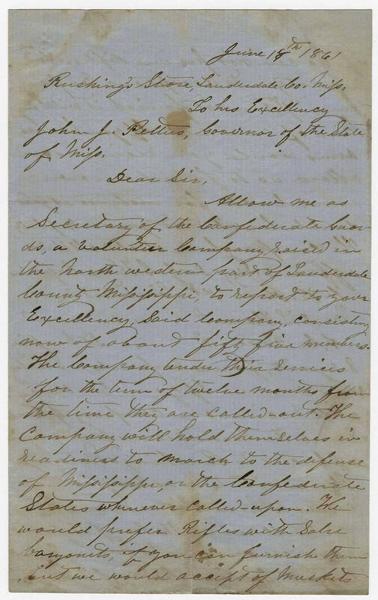 June 18th 1861
Rushing's Store, Lauderdale Co. Miss.
To his Excellency
John J. Pettus, Governor of the State
of Miss.
Dear Sir,
Allow me as
Secretary of the Confederate Guar-
ds, a volunteer Company raised in
the North western part of Lauderdale
County Mississippi to report to your
Excellency, Said Company, consisting
now of about fifty five members.
The Company tender their services
for the term of twelve months from
the time they are called-out. The
Company will hold themselves in
readiness to march to the defense
of Mississippi, or the Confederate
States whenever called-upon. The
would prefer Rifles with Sabre
bayonets, if you can furnish them
, but we would accept of Muskets